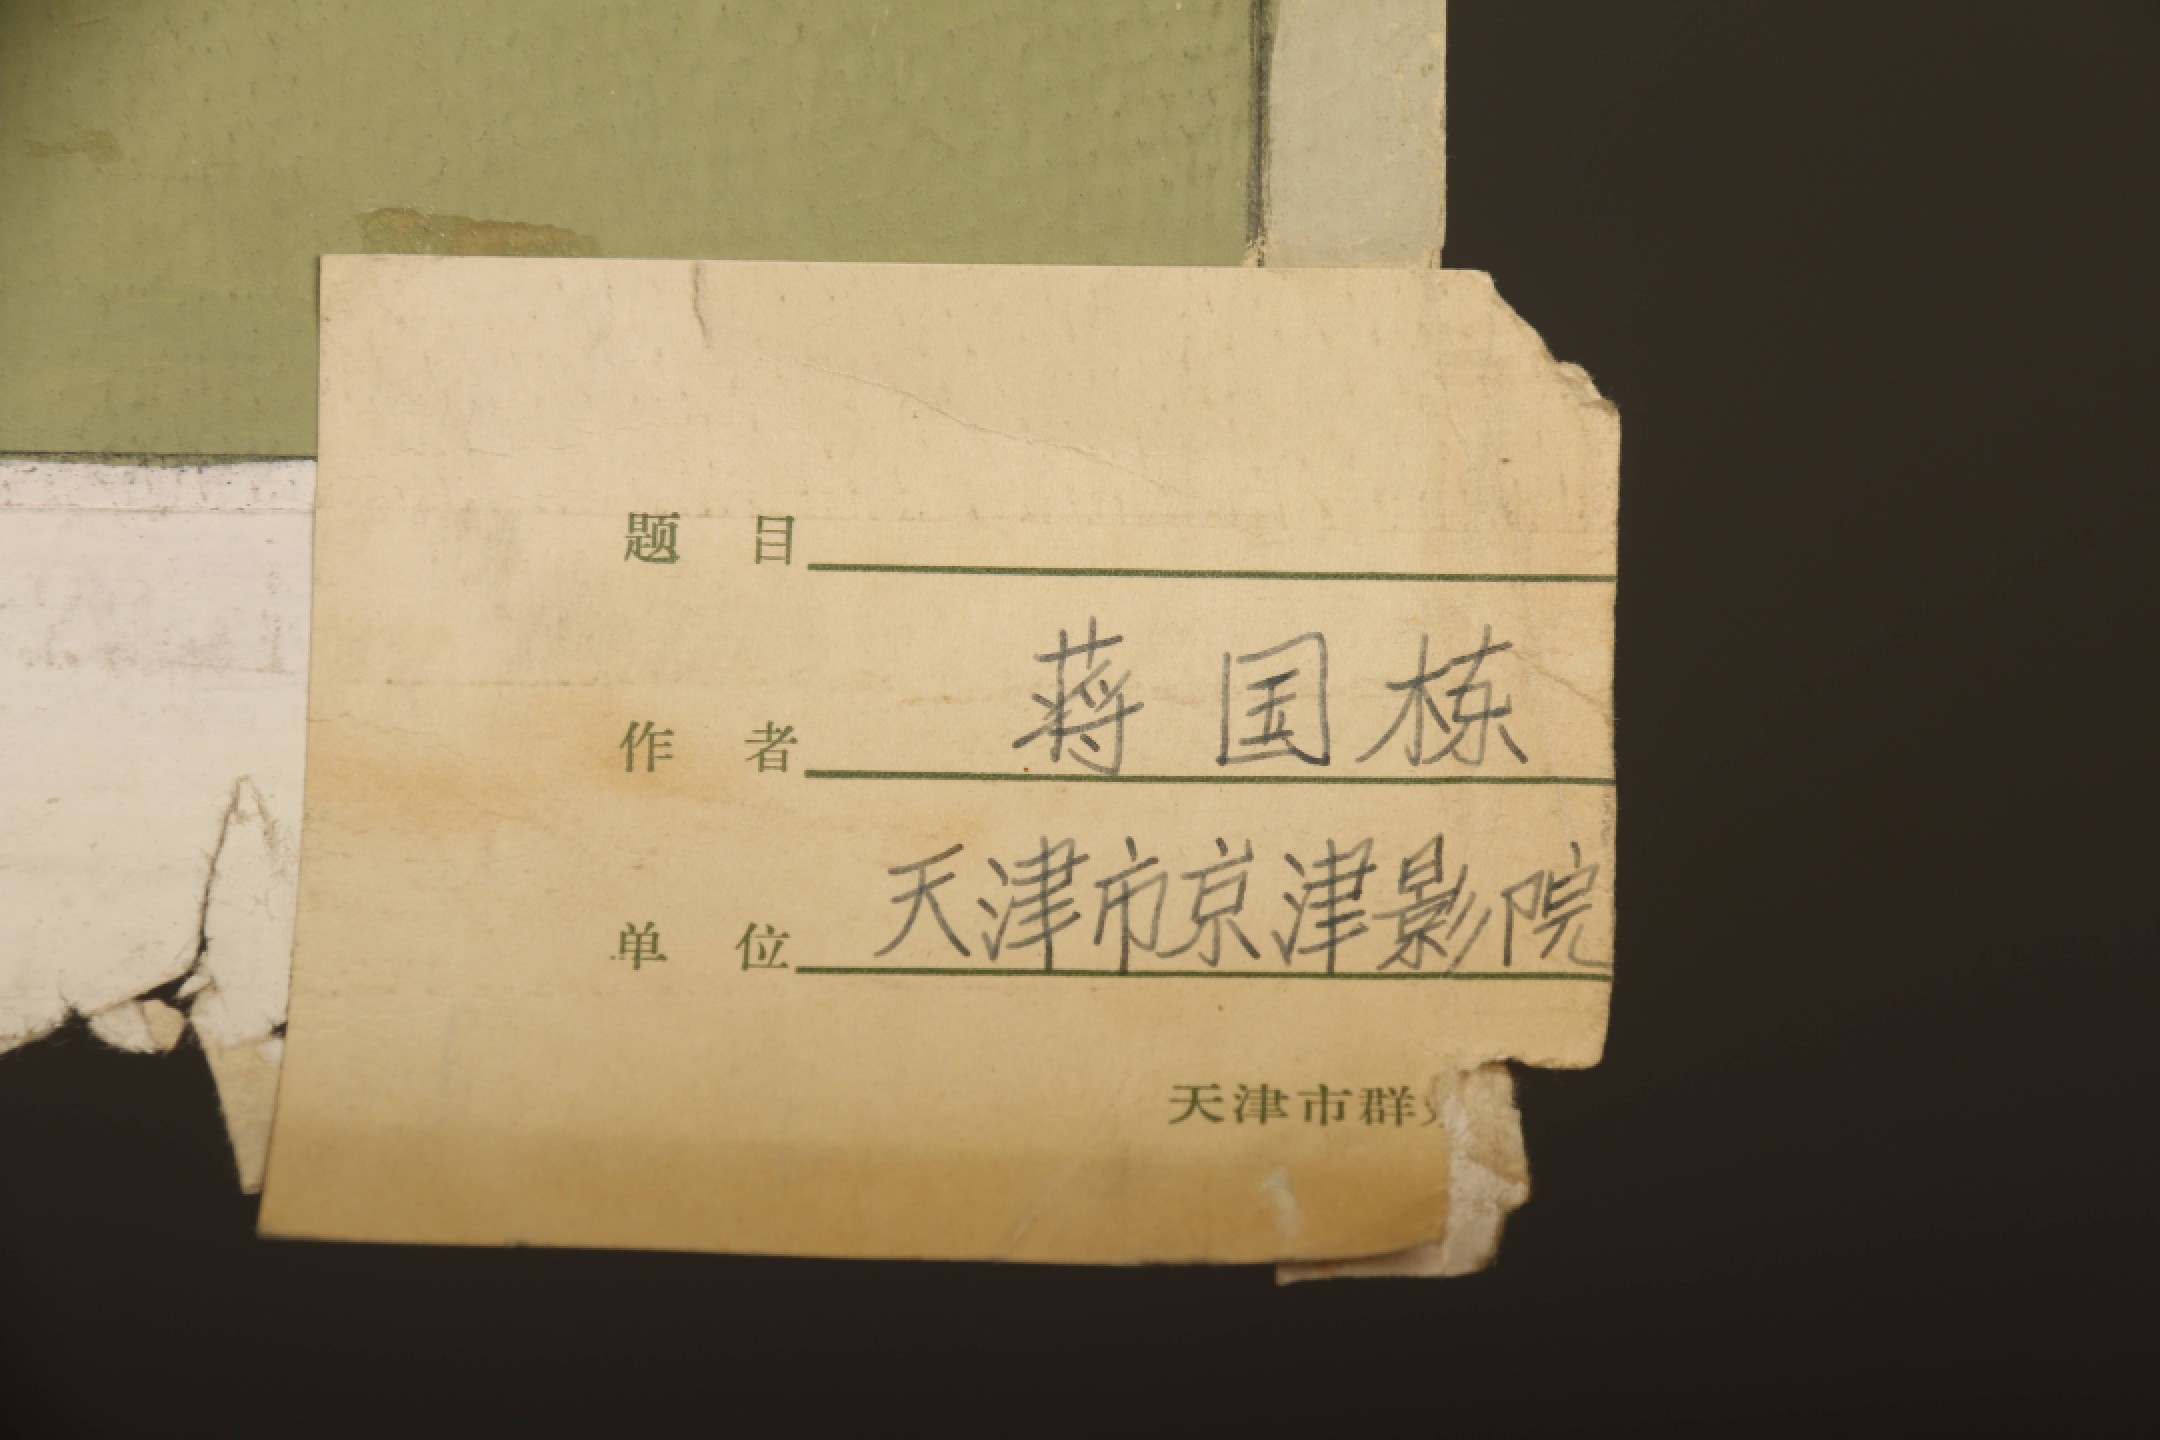 题 目
作 者 蒋国栋
单 位 天津市京津影院
天津市群